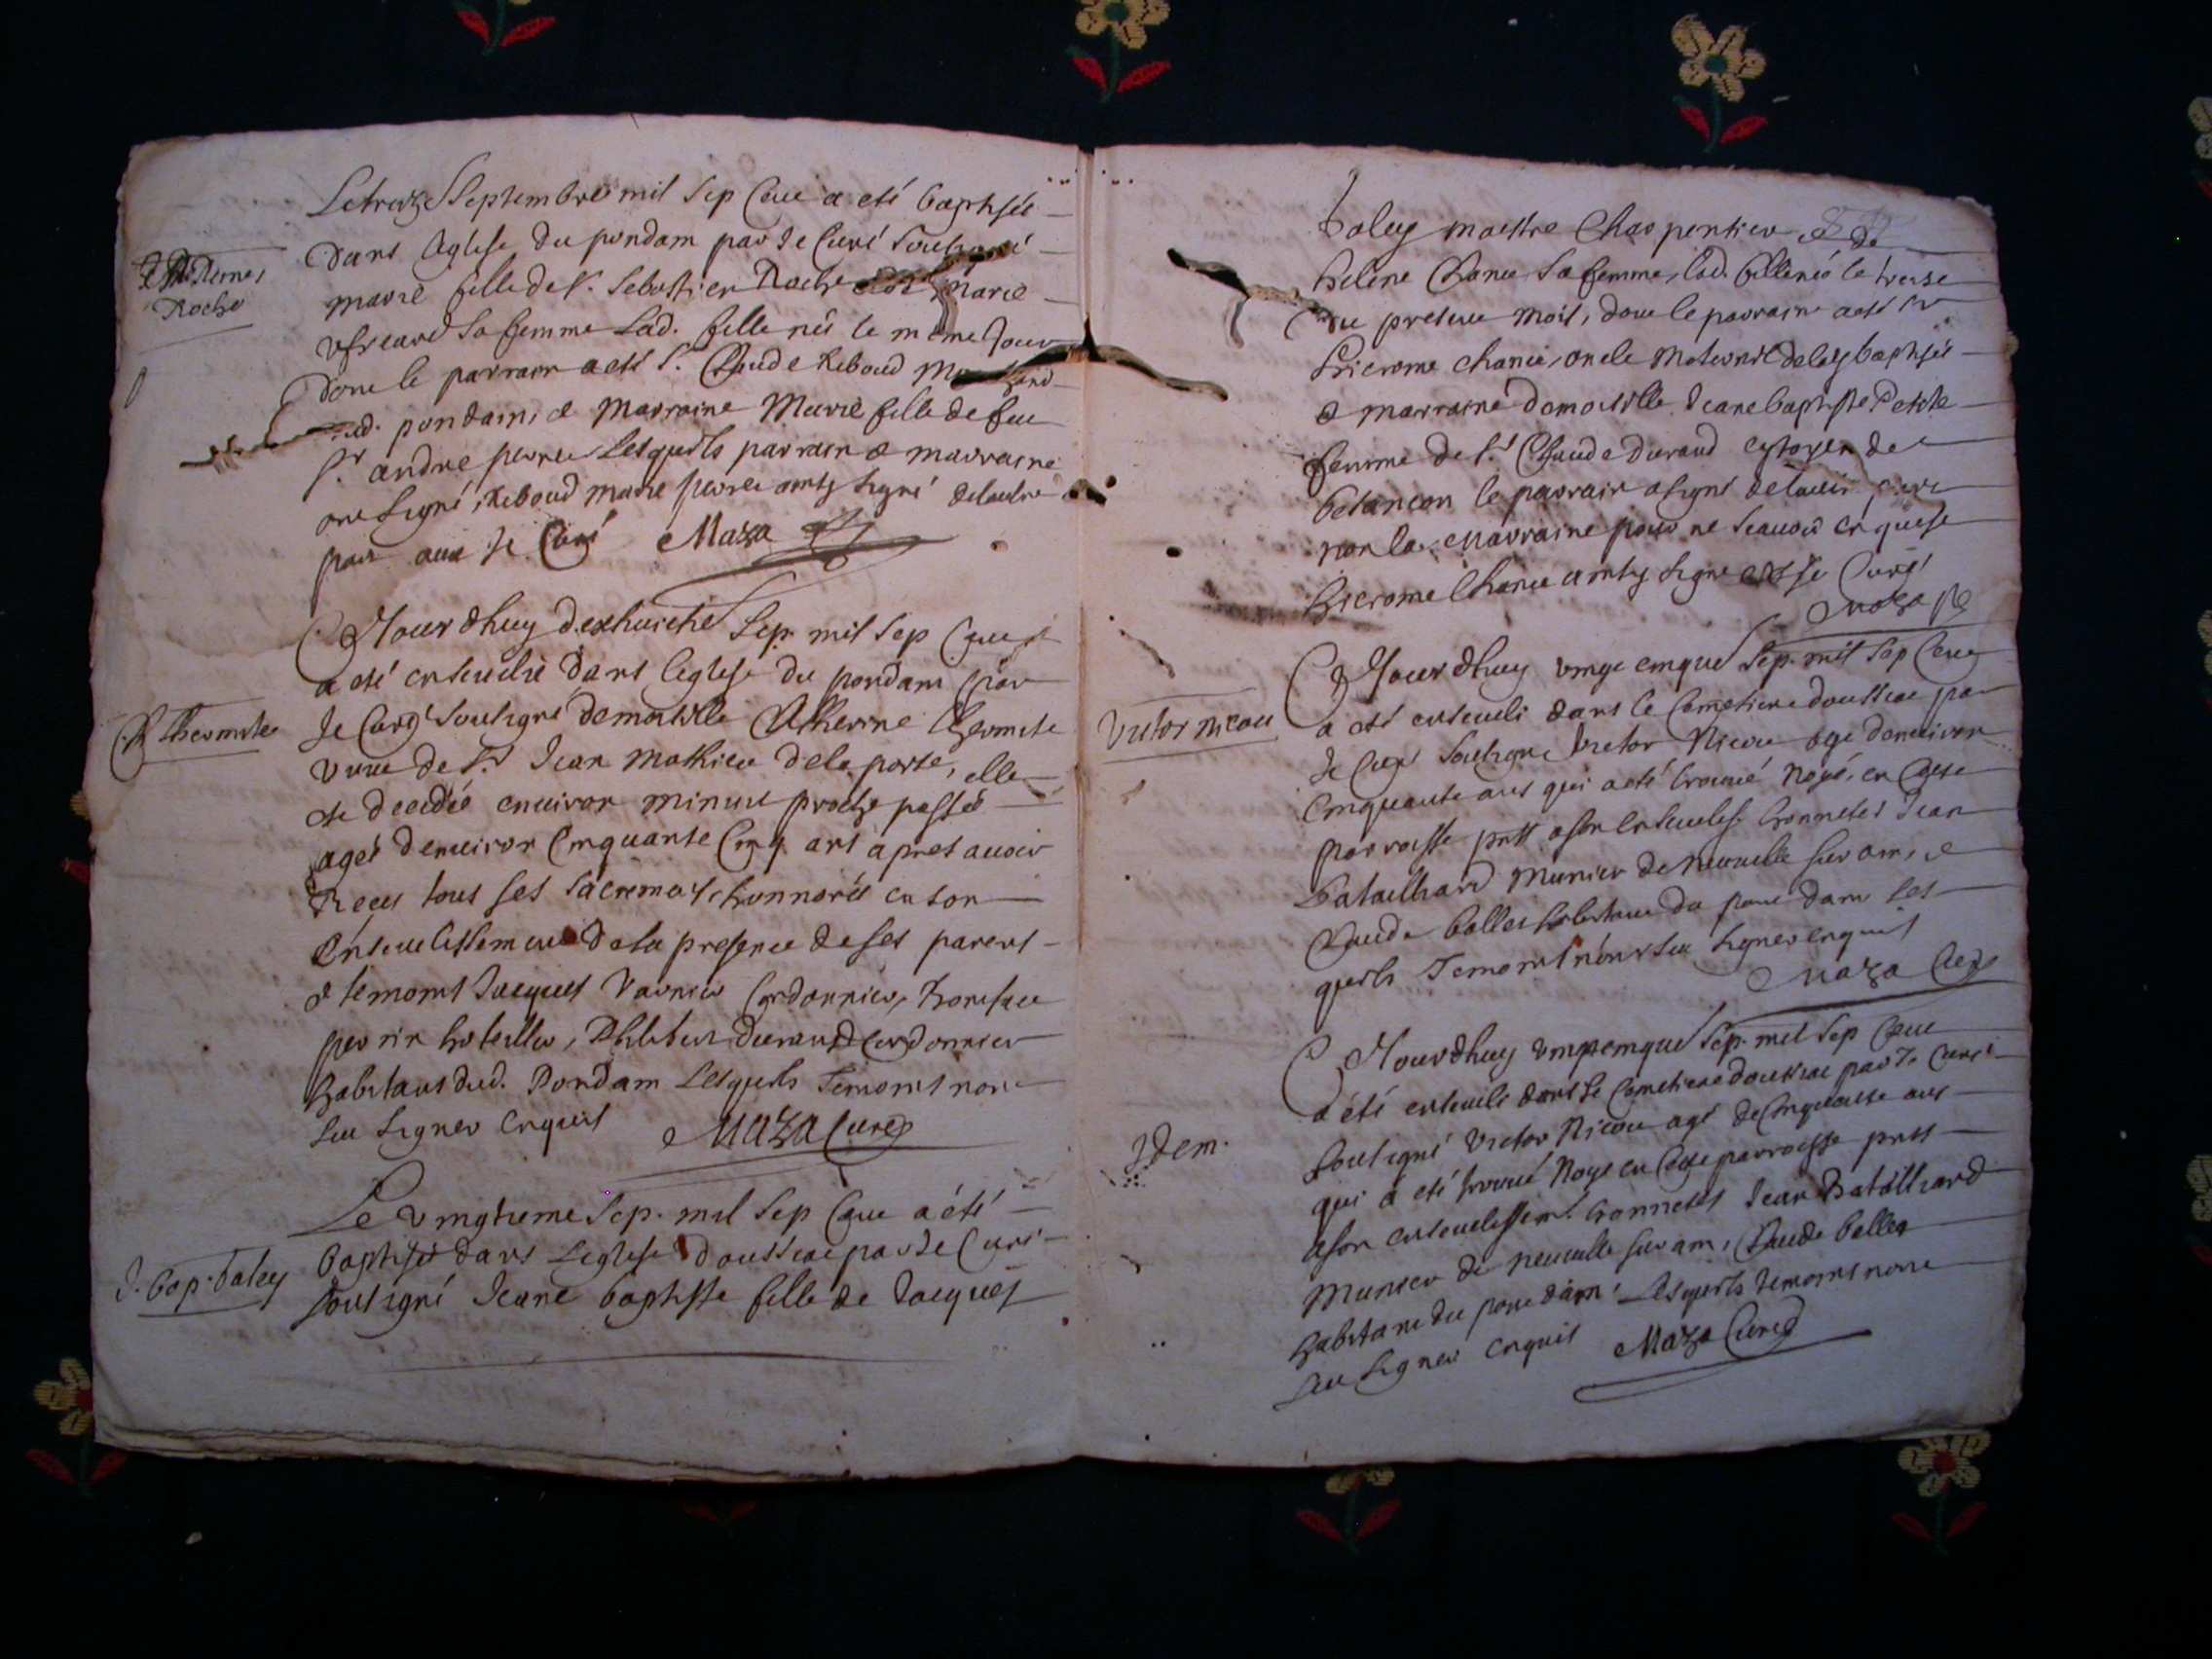 Le treize Septembre mil Sep Cent a eté baptisée
dans leglise du pondam par Je Curé Soubsigné
J. M. Roche
marie fille de Sr. Sebastien Roche et de Marie
sa femme lad. fille née le meme Jour
dont le parrain a esté Sr. Claude Reboud
dud. pondain, et marraine Marie fille de feu
Sr. andre perret Lesquels parrain et marraine
ont signé, Reboud marie perret ainsy signé
par Je Curé Maza
Cejourdhuy dexhuictie Sep. mil Sep Cent
a eté ensevelie dans leglise du pondam par
C. Lhermite
Je Curé Soubsigné demoiselle Catherine Lhermite
vuve de Sr. Jean Mathieu delaporte, elle
est decedée enuiron minuit proche passée
ageé denuiron Cinquante Cinq ans apres auoir
Receu tous ses sacremens honnorée en son
Enseuelissement de la presence de ses parens
et temoins Jacques Varnier Cordonnier,
perrin hotellier, Philibert Durand Cordonnier
habitans dud. Pondam Lesquels Temoins nont
sceu signer enquis Maza Curé
Le vingtieme Sep. mil Sep Cent a été
J. bap. baley
baptisée dans Leglise doussiat par Je Curé
soubsigné Jeane baptiste fille de Jacques
baley maistre Charpentier et de
helene Chanée sa femme, lad. fille née le treise
du present mois, dont le parrain a esté Sr
hierome chanée, oncle Maternel de la baptisée
et marraine demoiselle Jeane baptiste
femme de Sr. Claude durand cytoyen de
besancon le parrain a signé
non la marraine pour ne scauoir enquise
hierome Chanée ainsy signé et Je Curé
Maza
Cejourdhuy vingt cinque Sep. mil Sep Cent
Victor nicou
a esté enseueli dans le Cemetiere doussiat par
Je Curé Soubsigné Victor Nicou agé denuiron
Cinquante ans qui a eté trouué Noyé en Cette
parroisse pnts a son enseueliss. honnetes Jean
bataillard Munier de Neuuille sur ain, et
Claude belley habitant du pont dain Les
quels Temoins nont sceu signer enquis
Maza Curé
Cejourdhuy vingt cinque Sep. mil Sep Cent
a été enseueli dans le Cemetiere doussiat par Je Curé
Idem.
soubsigné Victor Nicou agé de Cinquante ans
qui a eté trouué Noyé en Cette parroisse pnts
a son enseuelissem. honnetes Jean Bataillard
Munier de Neuuille sur ain, Claude belley
habitant du pont dain, Lesquels temoins nont
sceu signer enquis Maza Curé